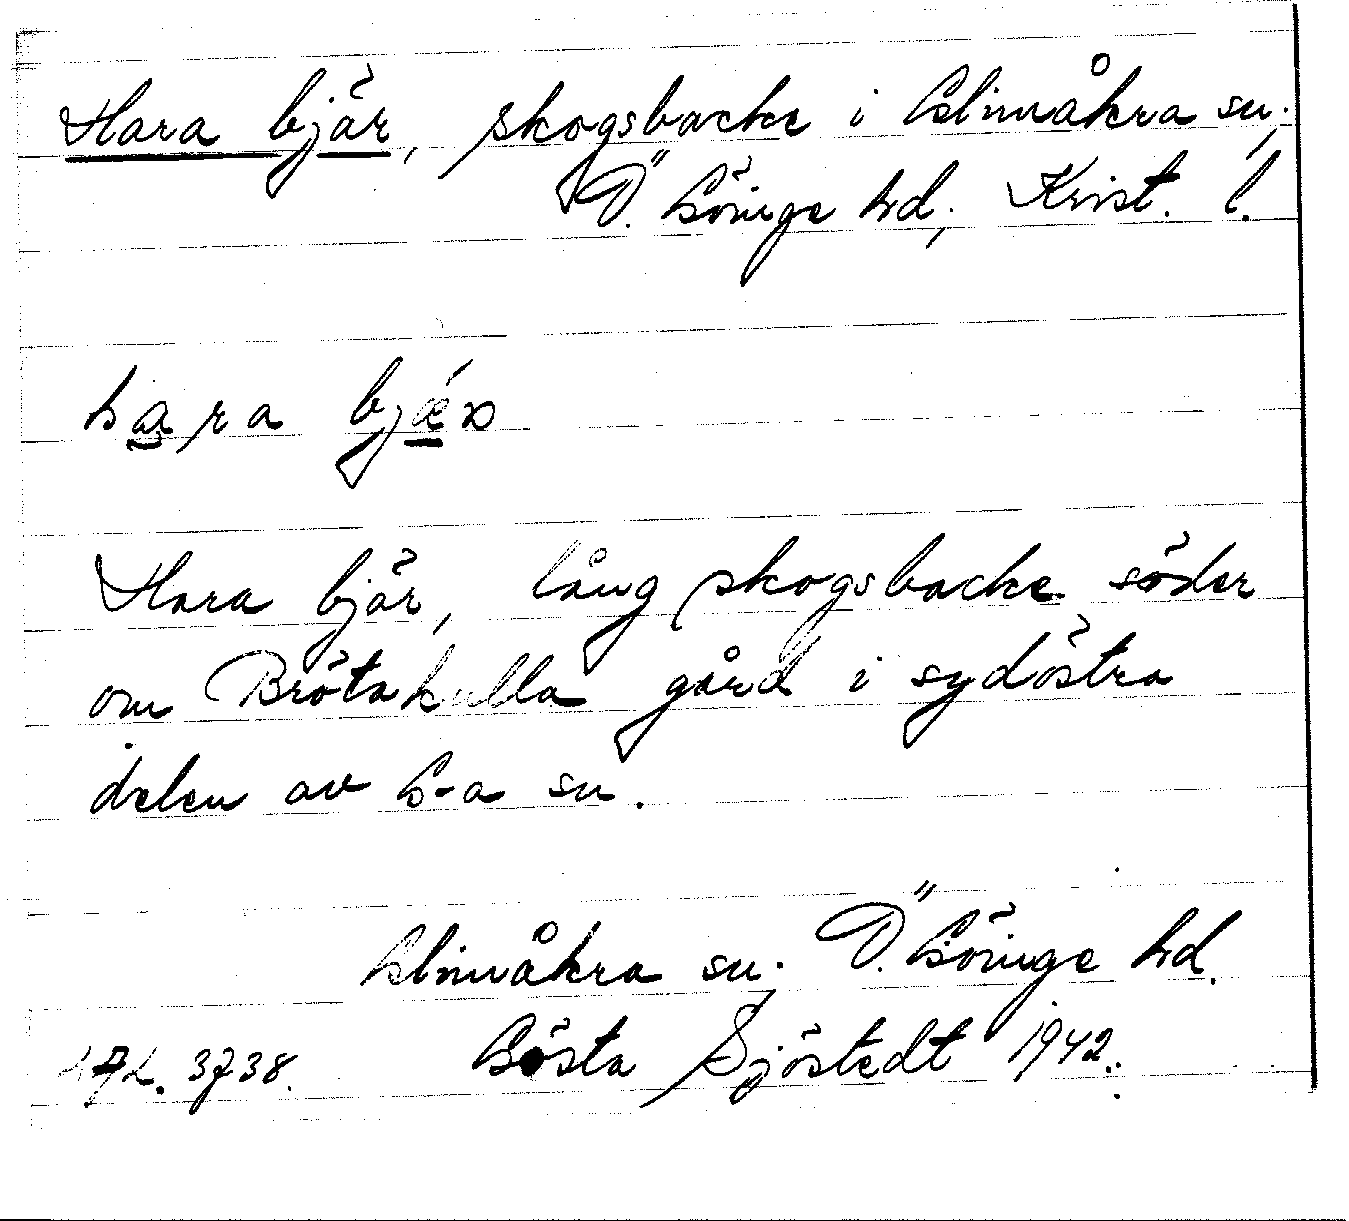 Hara bjär, skogsbacke i Glimåkra sn,
Ö. Göinge hd, Krist. l.
hara bjær
Hara bjär, lång skogsbacke söder
om Brötakulla gård i sydöstra
delen av G-a sn.
Glimåkra sn. Ö. Göinge hd.
3738. Gösta Sjöstedt 1942.